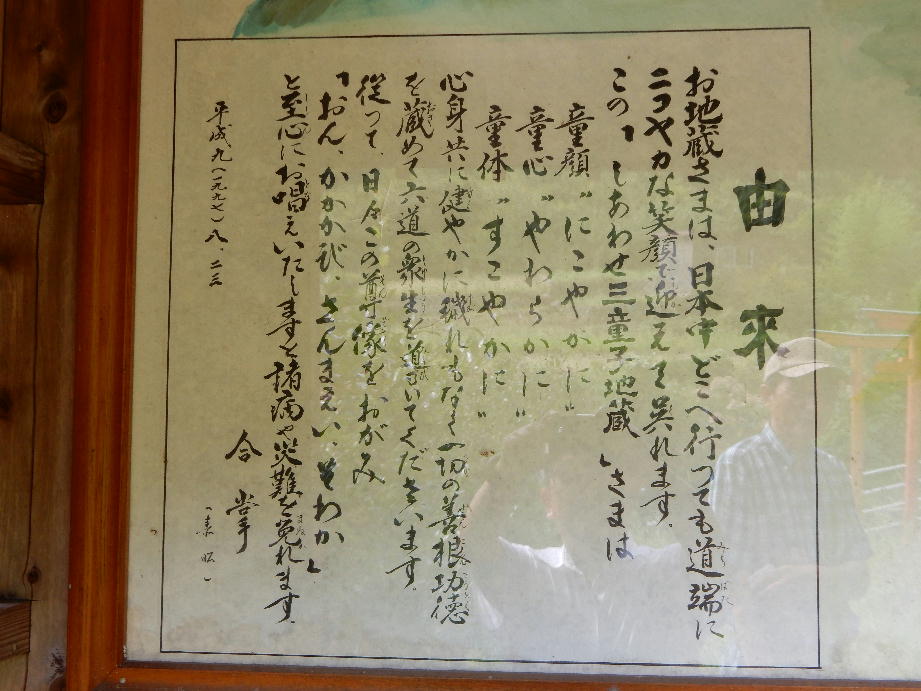 由來
お地蔵さまは、日本中どこへ行つても道端に
ニコヤカな笑顔で迎えて呉れます。
この「しあわせ三童子地蔵」さまは
童顔〝にこやかに〟
童心〝やわらかに〟
童体〝すこやかに〟
心身共に健やかに穢れもなく一切の善根功徳
を蔵めて六道の衆生を導いてくださいます。
従つて、日々この尊像をおがみ
「おん、かかかび、さんまえい、そわか」
と至心にお唱えいたしますと諸病や災難を免れます。
合掌
平成九(一九九七)八、二三